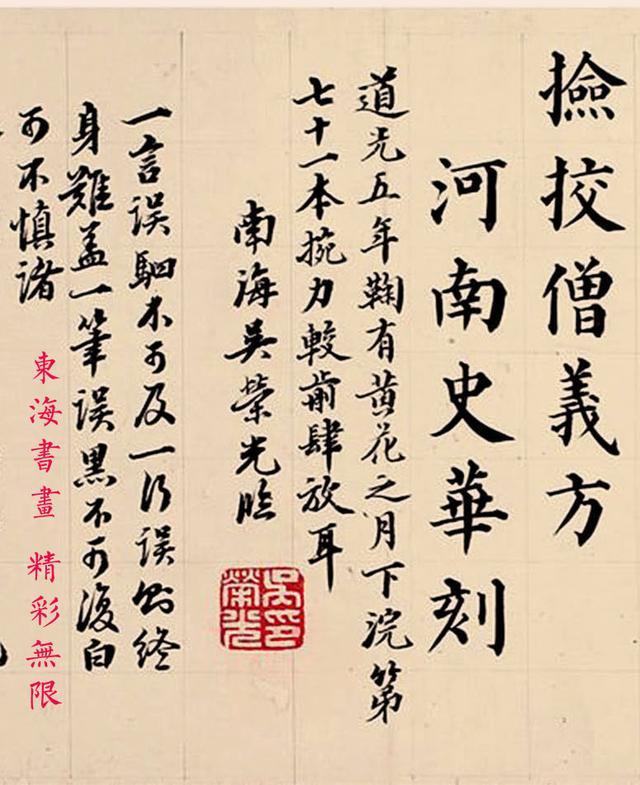 撿挍僧義方
河南史華刻
道光五年鞠有黄花之月下浣第
七十一本捥力較前肆放耳
南海吳榮光臨
吳榮光印
一言误駟不可及一行误則終
身難盖一筆误黑不可復白
可不慎诸
東海書畫 精彩無限